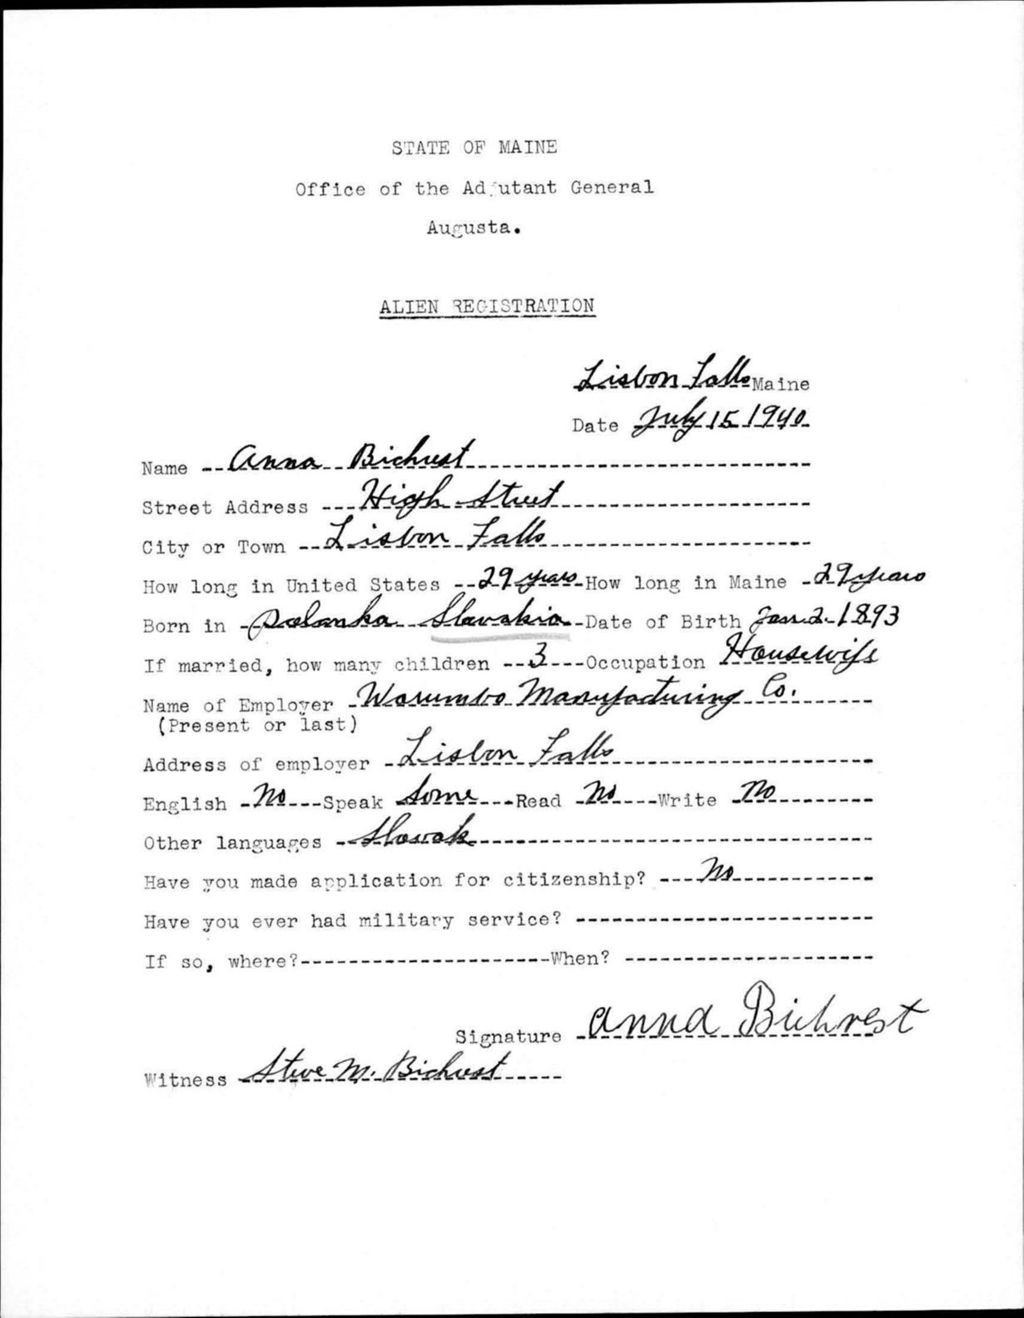 STATE OF MAINE
Office of the Adjutant General
Augusta.
ALIEN REGISTRATION
Lisbon Falls Maine
Date July 15 1940
Name Anna Bichrest
Street Address High Street
City or Town Lisbon Falls
How long in United States 29 years How long in Maine 29 years
Born in Polanka Slovakia Date of Birth Jan. 2. 1893
If married, how many children 3 Occupation Housewife
Name of Employer Worumbo Manufacturing Co.
(Present or last)
Address of employer Lisbon Falls
English No Speak Some Read No Write No
Other languages Slovak
Have you made application for citizenship? No
Have you ever had military service?
If so, where? When?
Signature Anna Bichrest
Witness Steve M. Bichrest